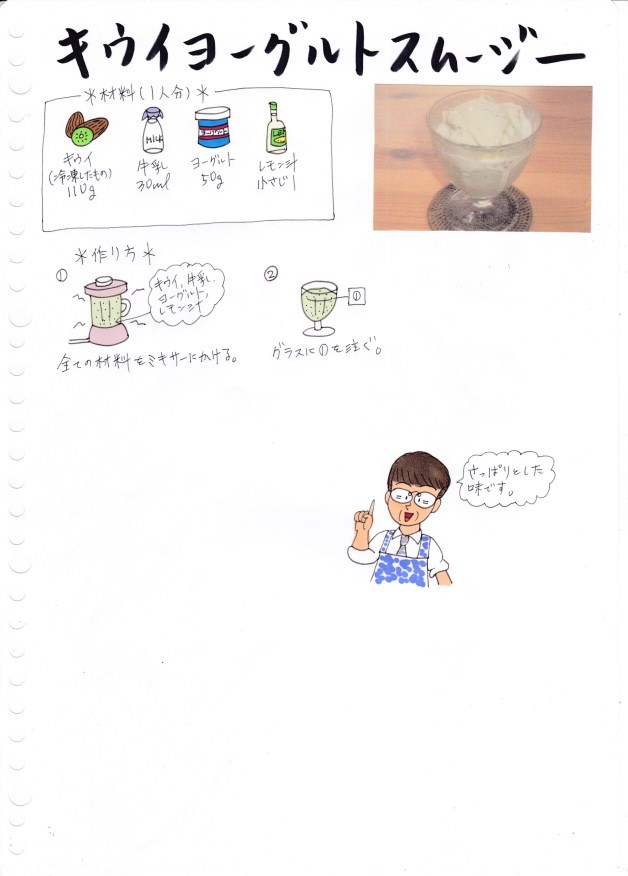 キウイヨーグルトスムージー
*材料(1人分)*
MILK
キウイ
(冷凍したもの)
110g
牛乳
30ml
ヨーグルト
50g
レモン汁
小さじ1
*作り方*
①
キウイ、牛乳、
ヨーグルト、
レモン汁
全ての材料をミキサーにかける。
②
①
グラスに①を注ぐ。
さっぱりとした
味です。